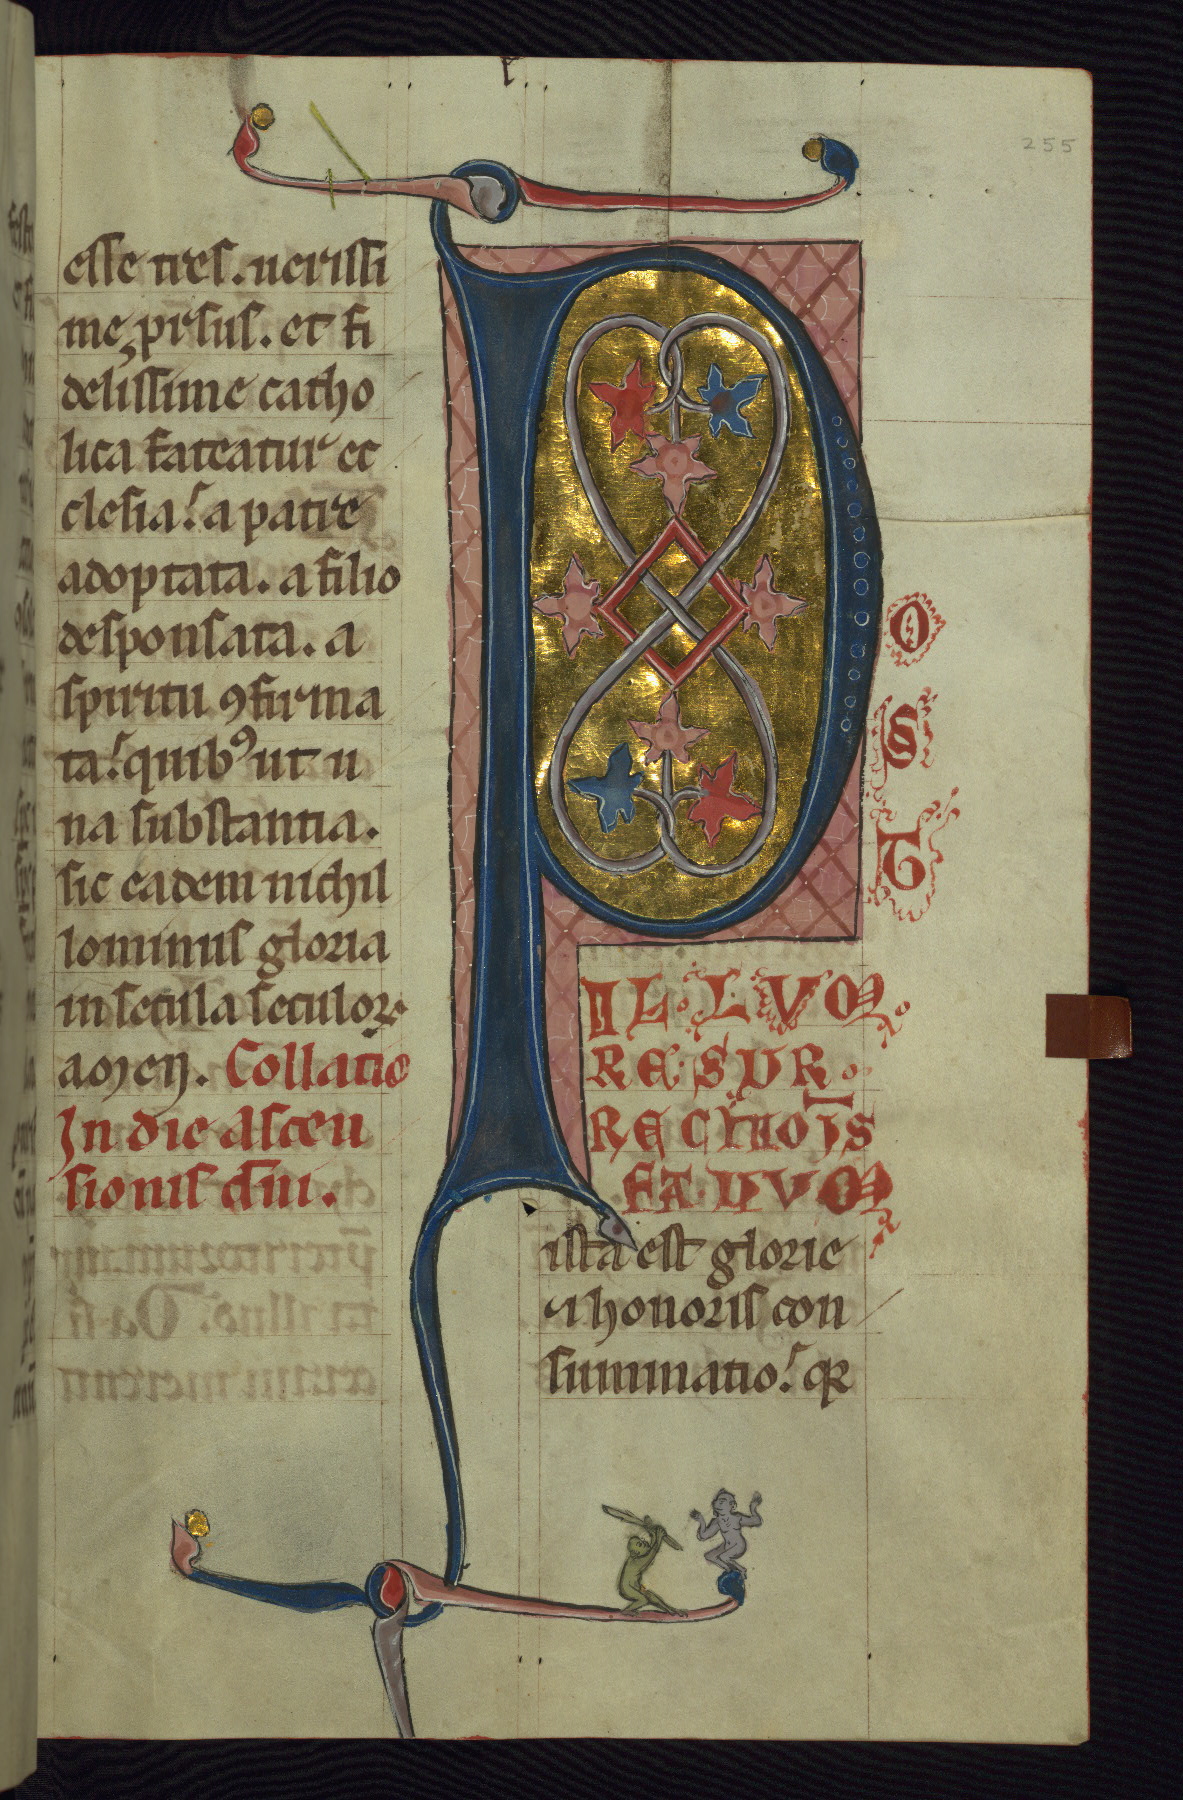 255
esse tres. uerissi
me prsus. et fi
delissime catho
lica fateatur ec
clesia. a patre
adoptata. a filio
desponsata. a
spiritu ꝯfirma
ta. quibꝰ ut u
na substantia.
sic eadem nichil
lominus gloria
in secula seculoꝝ
amen. Collatio
In die ascen
sionis dn̄i.
P
O
S
T
ILLUM
RESUR
RECTIOIS
EA. DUM
ista est glorie
honoris con
summatio.